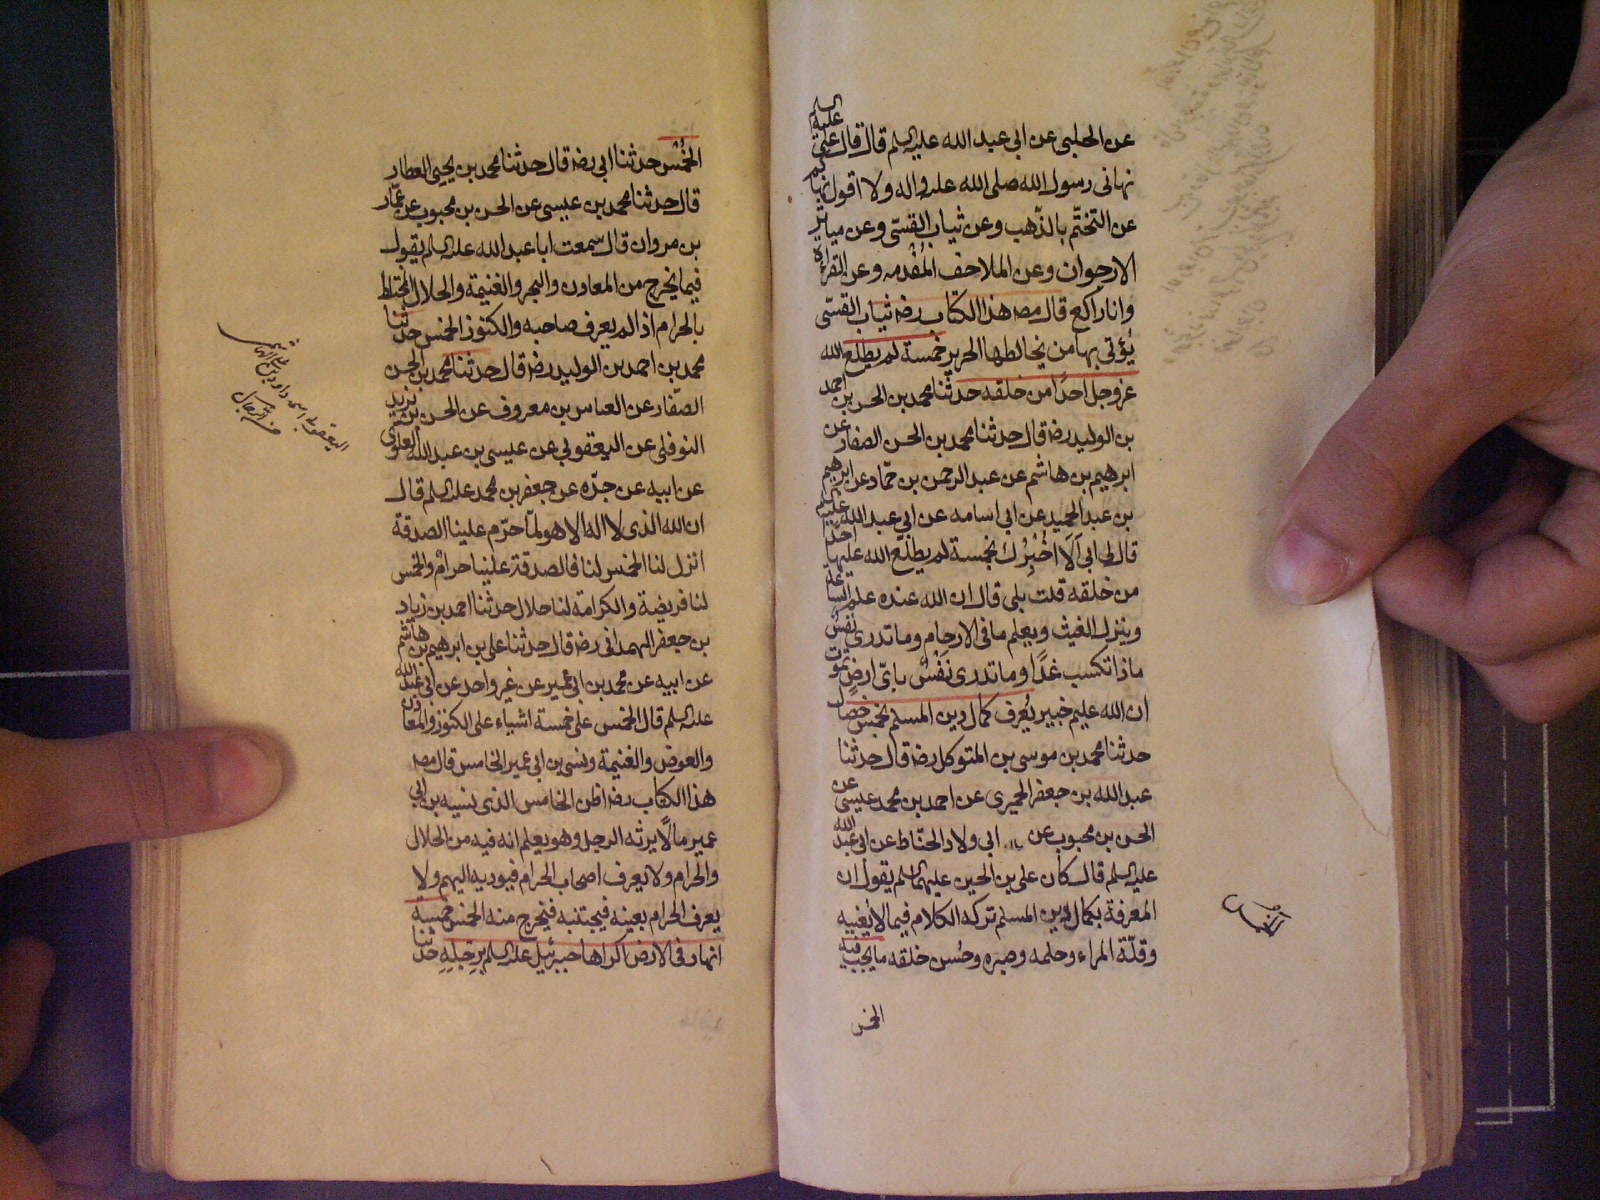 عن الحلبي عن ابي عبد الله عليه السلم قال قال علي عليه السلم
نهاني رسول الله صلى الله عليه واله ولا اقول نهاكم
عن التختّم بالذّهب وعن ثياب القسّي وعن مياثر
الارجوان وعن الملاحف المُفْدمه وعن القراءة
وانا راكع قال مصـ هذا الكتاب رضه ثياب القسّي
يُؤتى بها من يخالطها الحرير خمسة لم يطلع الله
عز وجل احدًا من خلقه حدثنا محمد بن الحسن بن احمد
بن الوليد رضه قال حدثنا محمد بن الحسن الصفار عن
ابرهيم بن هاشم عن عبد الرحمن بن حمّاد عن ابرهيم
بن عبد الحميد عن ابي اسامه عن ابي عبد الله عليه السلم
قال لي ابي اَلَا اُخْبِرُك بخمسة لم يطلع الله عليها احدًا
من خلقه قلت بلى قال ان الله عنده علم الساعة
وينزل الغيث ويعلم ما في الارحام وما تدري نَفْسٌ
ماذا تكسب غدًا وما تدري نَفْسٌ باىّ ارضٍ تموت
ان الله عليم خبير يُعرف كمال دين المسلم بخمس خصال
حدثنا محمد بن موسى بن المتوكل رضه قال حدثنا
عبد الله بن جعفر الحميري عن احمد بن محمد عيسى عن
الحسن بن محبوب عن ابي ولاد الحنّاط عن ابي عبد الله
عليه السلم قال كان علي بن الحسين عليهما السلم يقول ان
المعرفة بكمال دين المسلم تركه الكلام فيما لا يَعْنيه
وقلّة المراء وحلمه وصبره وحُسن خلقه ما يجب فيه
الخمس
الخُمْس حدثنا ابي رضه قال حدثنا محمد بن يحيى العطار
قال حدثنا محمد بن عيسى عن الحسن بن محبوب عن عمّار
بن مروان قال سمعت ابا عبد الله عليه السلم يقول
فيما يخرج من المعادن والبحر والغنيمة والحلال المختلط
بالحرام اذا لم يعرف صاحبه والكنوز الخمس حدثنا
محمد بن احمد بن الوليد رضه قال حدثنا محمد بن الحسن
الصفّار عن العباس بن معروف عن الحسن بن يزيد
النوفلي عن اليعقوبي عن عيسى بن عبد الله العلوي
عن ابيه عن جدّه عن جعفر بن محمد عليه السلم قال
ان الله الذي لا اله الا هو لمّا حرّم علينا الصدقة
انزل لنا الخمس لنا فالصدقة علينا حرام والخمس
لنا فريضة والكرامة لنا حلال حدثنا احمد بن زياد
بن جعفر الهمداني رضه قال حدثنا علي بن ابرهيم بن هاشم
عن ابيه عن محمد بن ابي عمير عن غير واحد عن ابي عبد الله
عليه السلم قال الخمس على خمسة اشياء على الكنوز والمعادن
والغوص والغنيمة ونسي بن ابي عمير الخامس قال مصـ
هذا الكتاب رضه اظن الخامس الذي نسيه بن ابي
عمير مالًا يرثه الرجل وهو يعلم انه فيه من الحلال
والحرام ولا يعرف اصحاب الحرام فيوديه اليهم ولا
يعرف الحرام بعينه فيجتنبه فيخرج منه الخمس خمسة
انهار في الارض كراها جبرئيل عليه السلم بِرِجْلِهِ حدثنا